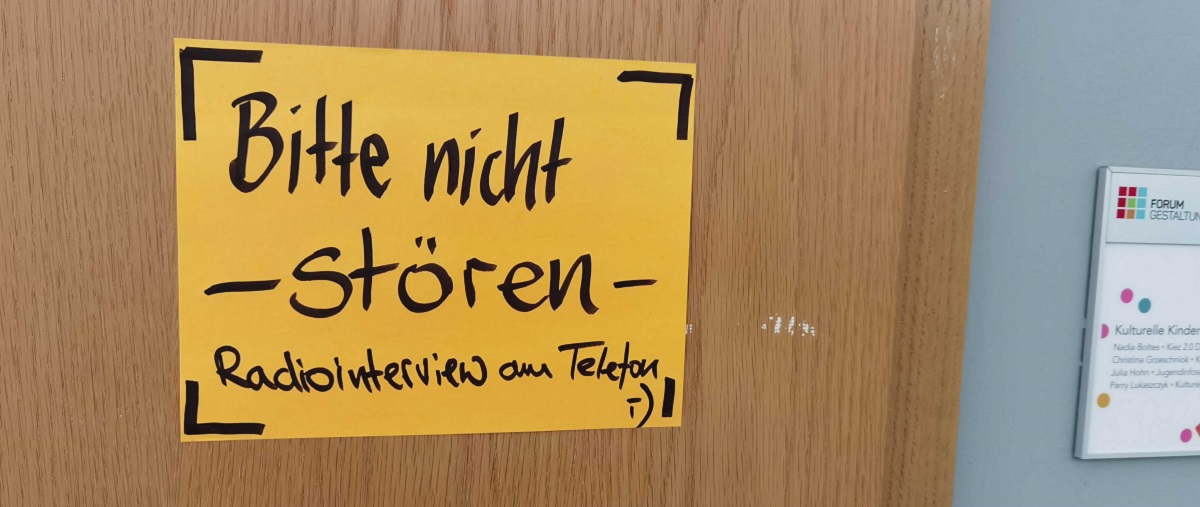 Bitte nicht
- stören -
Radiointerview am Telefon
;-)
FORUM
GESTALTUN
Kulturelle Kinder
Nadia Boltes • Kiez 2.0 D
Christina Groeschniok • K
Julia Hohn • Jugendinfos
Perry Lukaszczyk • Kulture